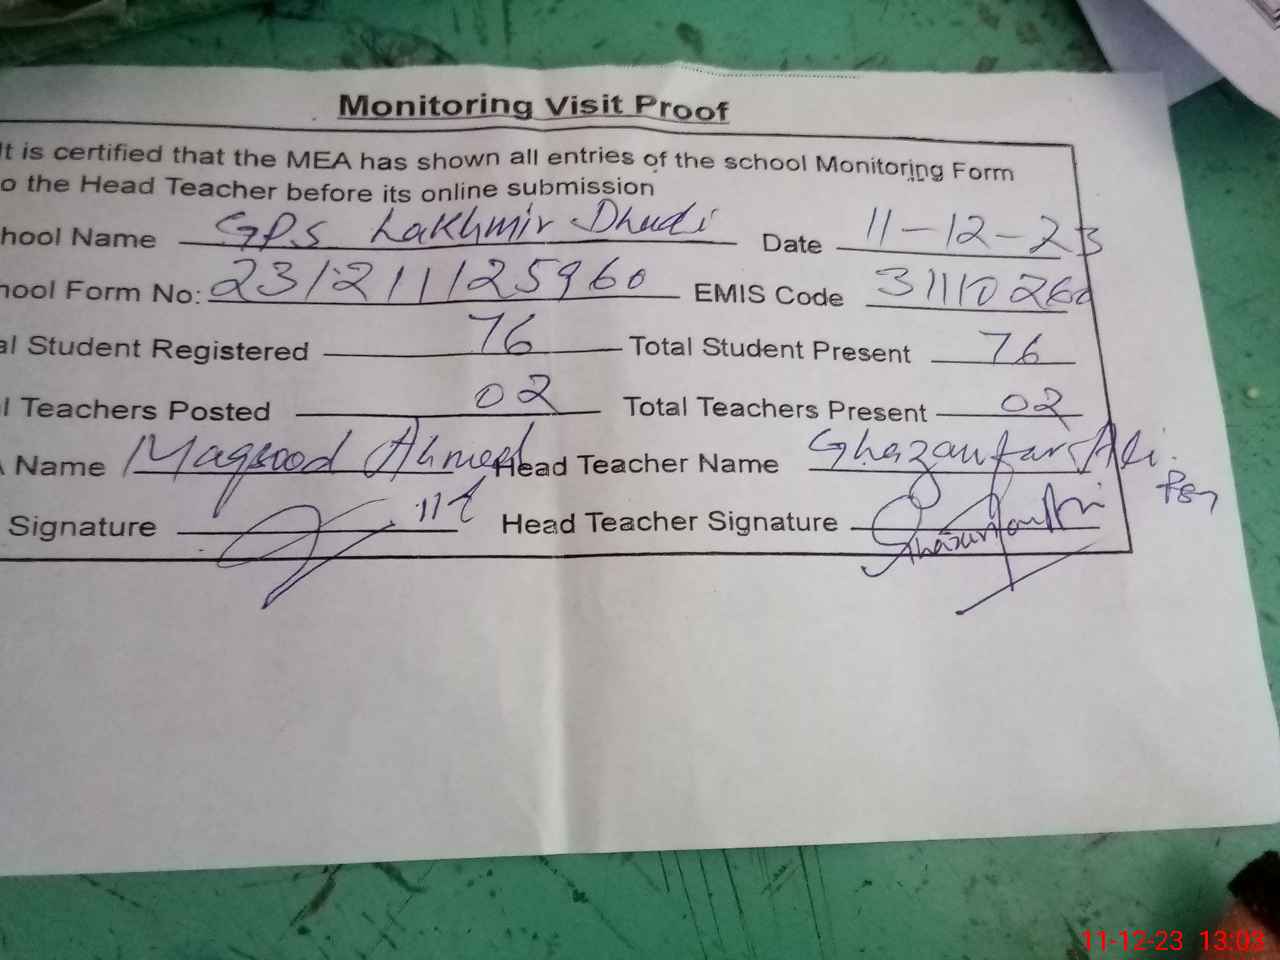 Monitoring Visit Proof
It is certified that the MEA has shown all entries of the school Monitoring Form
o the Head Teacher before its online submission
hool Name GPS Lakhmir Dhudi Date 11-12-23
hool Form No: 231211125960 EMIS Code 31110260
al Student Registered 76 Total Student Present 76
l Teachers Posted 02 Total Teachers Present 02
Name Maqsood Ahmed Head Teacher Name Ghazanfar Ali
Signature Head Teacher Signature
11-12-23 13:03